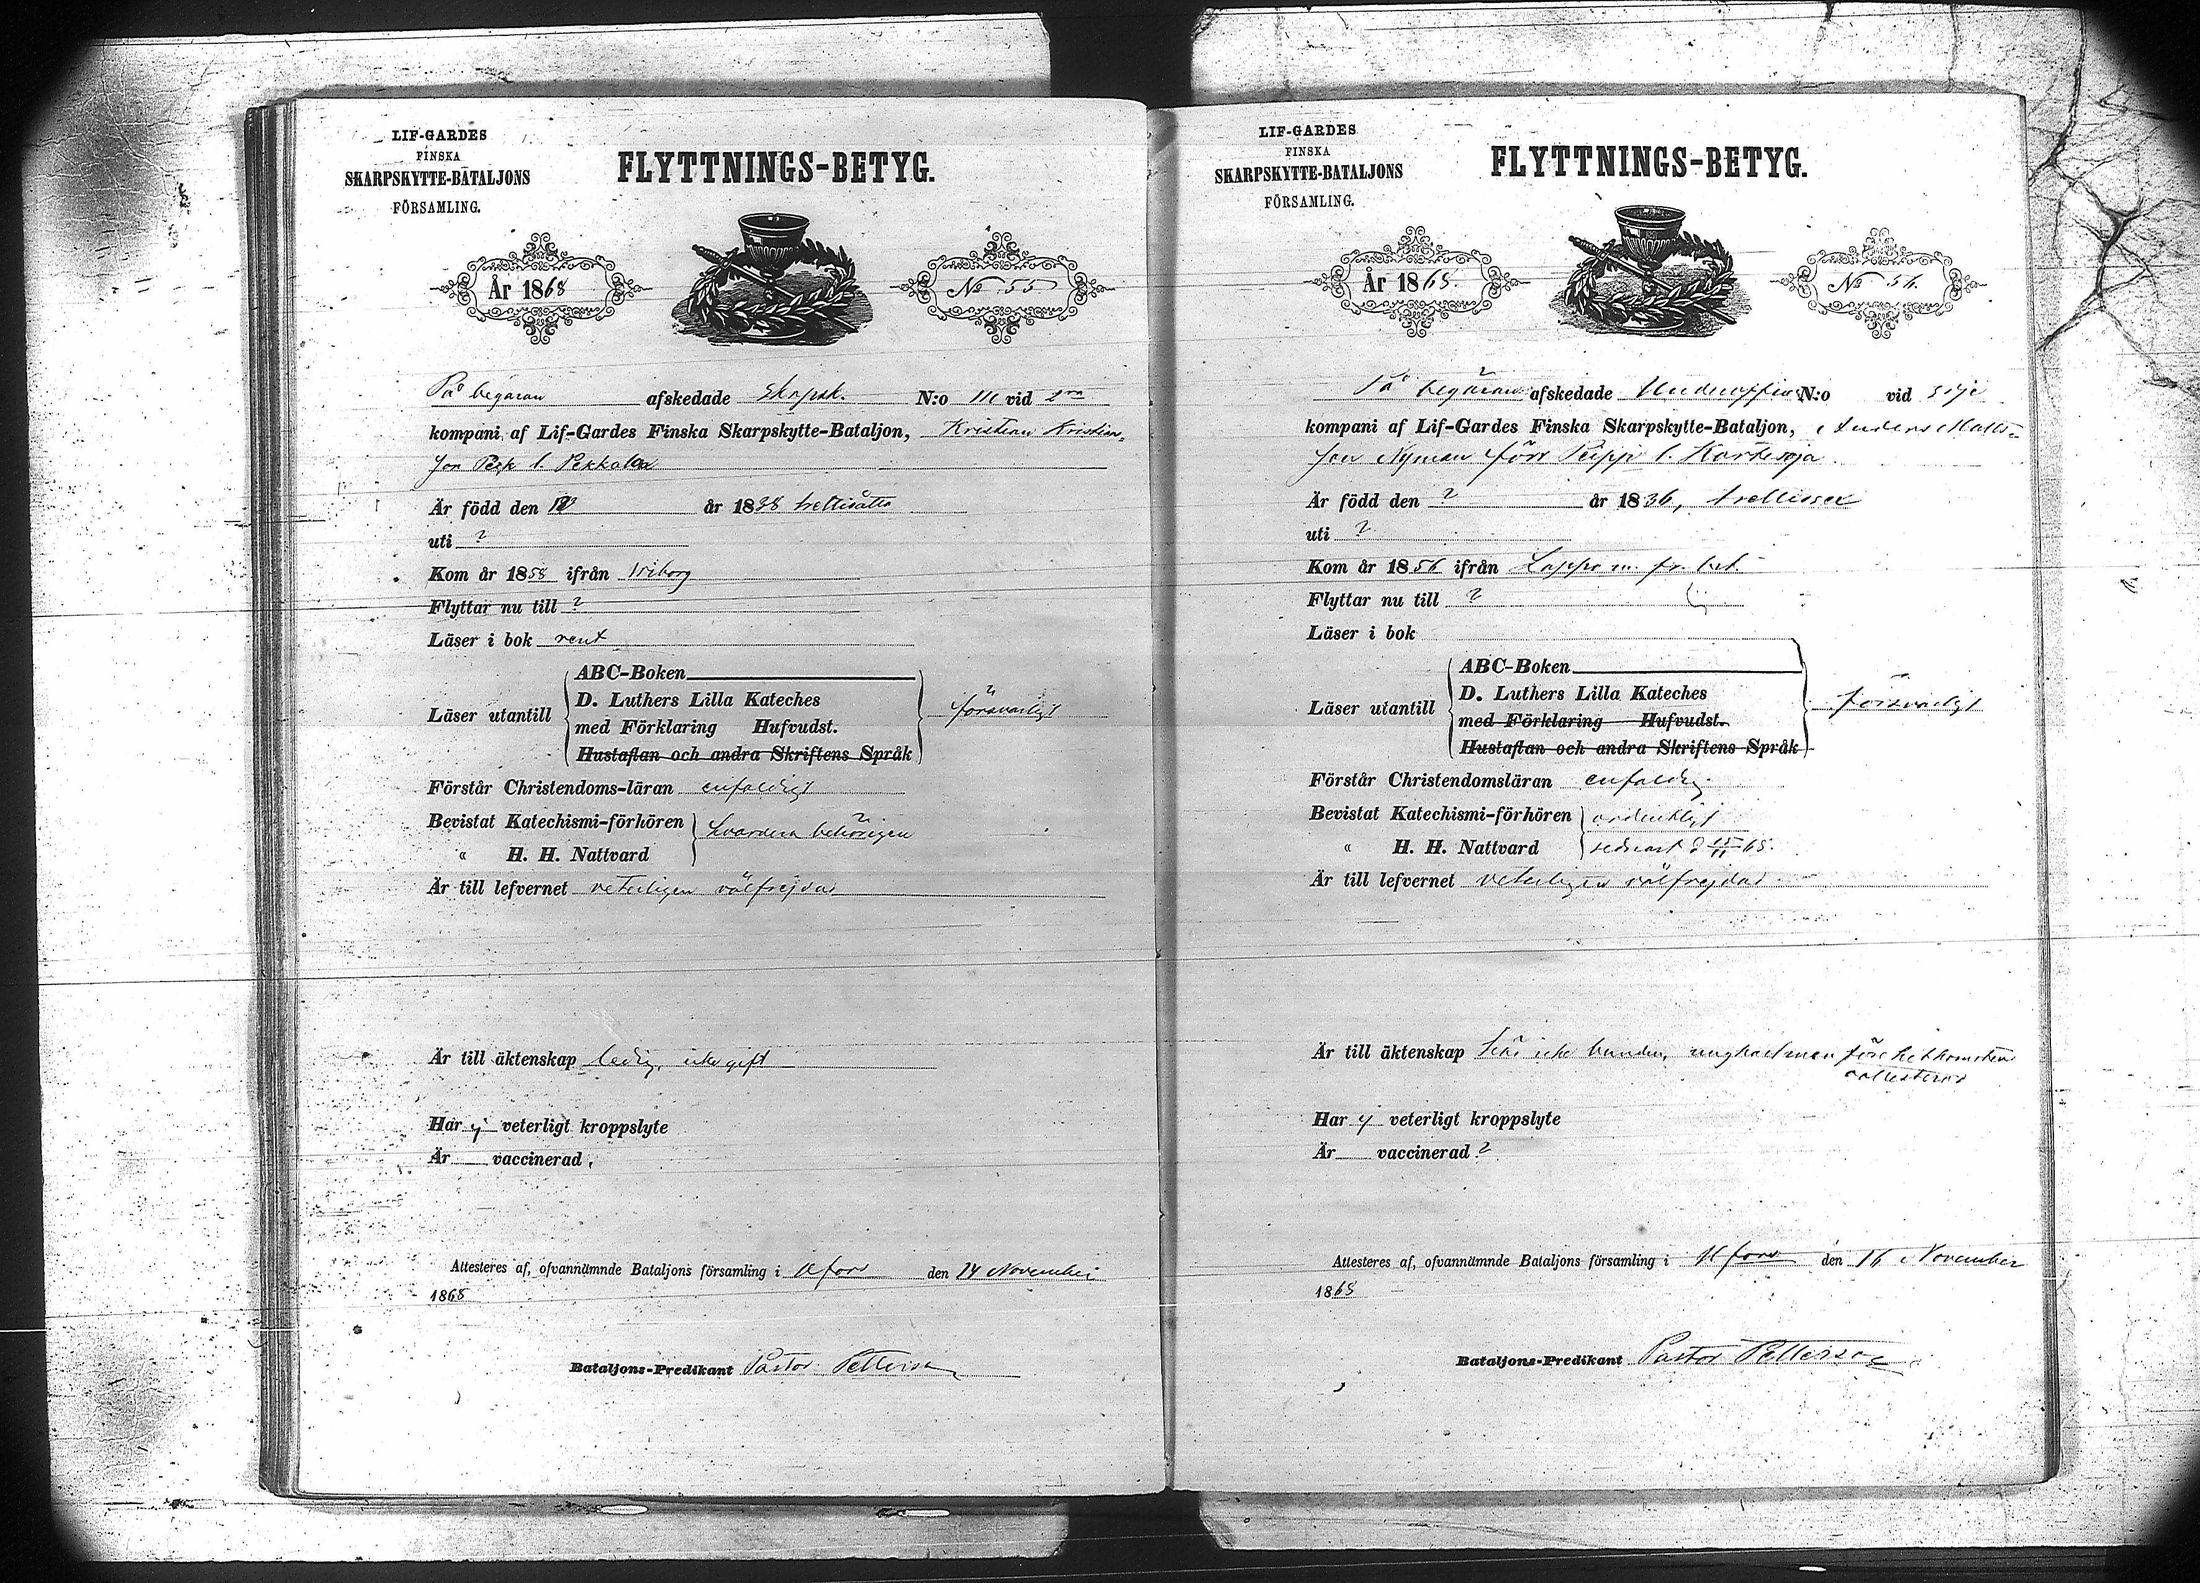 LIF-GARDES
FINSKA
SKARPSKYTTE-BATALJONS
FÖRSAMLING.
FLYTTNINGS-BETYG.
År 1868
No 55
På begäran afskedade Skarpsk. N:o 111 vid 2ra
kompani af Lif-Gardes Finska Skarpskytte-Bataljon, Kristian Kristian-
son Pesk l. Pekkala
Är född den år 1838 trettioåtta
uti ?
Kom år 1858 ifrån Wiborg
Flyttar nu till ?
Läser i bok rent
Läser utantill
ABC-Boken
D. Luthers Lilla Kateches
med Förklaring Hufvudst.
Hustaflan och andra Skriftens Språk
försvarligt
Förstår Christendoms-läran enfaldigt
Bevistat Katechismi-förhören
« H. H. Nattvard
behörigen
Är till lefvernet veterligen välfrejdad
Är till äktenskap ledig, icke gift
Har ej veterligt kroppslyte
Är vaccinerad.
Attesteres af, ofvannämnde Bataljons församling i Hfors den 14 November
1868
Bataljons-Predikant Pastor Petterson
LIF-GARDES
FINSKA
SKARPSKYTTE-BATALJONS
FÖRSAMLING.
FLYTTNINGS-BETYG.
År 1868.
No 56.
På begäran afskedade Underofficer N:o vid 3dje
kompani af Lif-Gardes Finska Skarpskytte-Bataljon, Anders Matts-
son Nyman förr Peippi l. Kortesoja
Är född den ? år 1836, trettiosex
uti ?
Kom år 1856 ifrån Lappo m. fr. bet.
Flyttar nu till ?
Läser i bok
Läser utantill
ABC-Boken
D. Luthers Lilla Kateches
med Förklaring Hufvudst.
Hustaflan och andra Skriftens Språk
försvarligt
Förstår Christendomsläran enfaldig.
Bevistat Katechismi-förhören ordentligt
« H. H. Nattvard senast d 15/11 68.
Är till lefvernet veterligen välfrejdad
Är till äktenskap icke bunden, ungkarl man före hitkomsten
attesterad
Har ej veterligt kroppslyte
Är vaccinerad ?
Attesteres af, ofvannämnde Bataljons församling i Hfors den 16 November
1868
Bataljons-Predikant Pastor Petterson